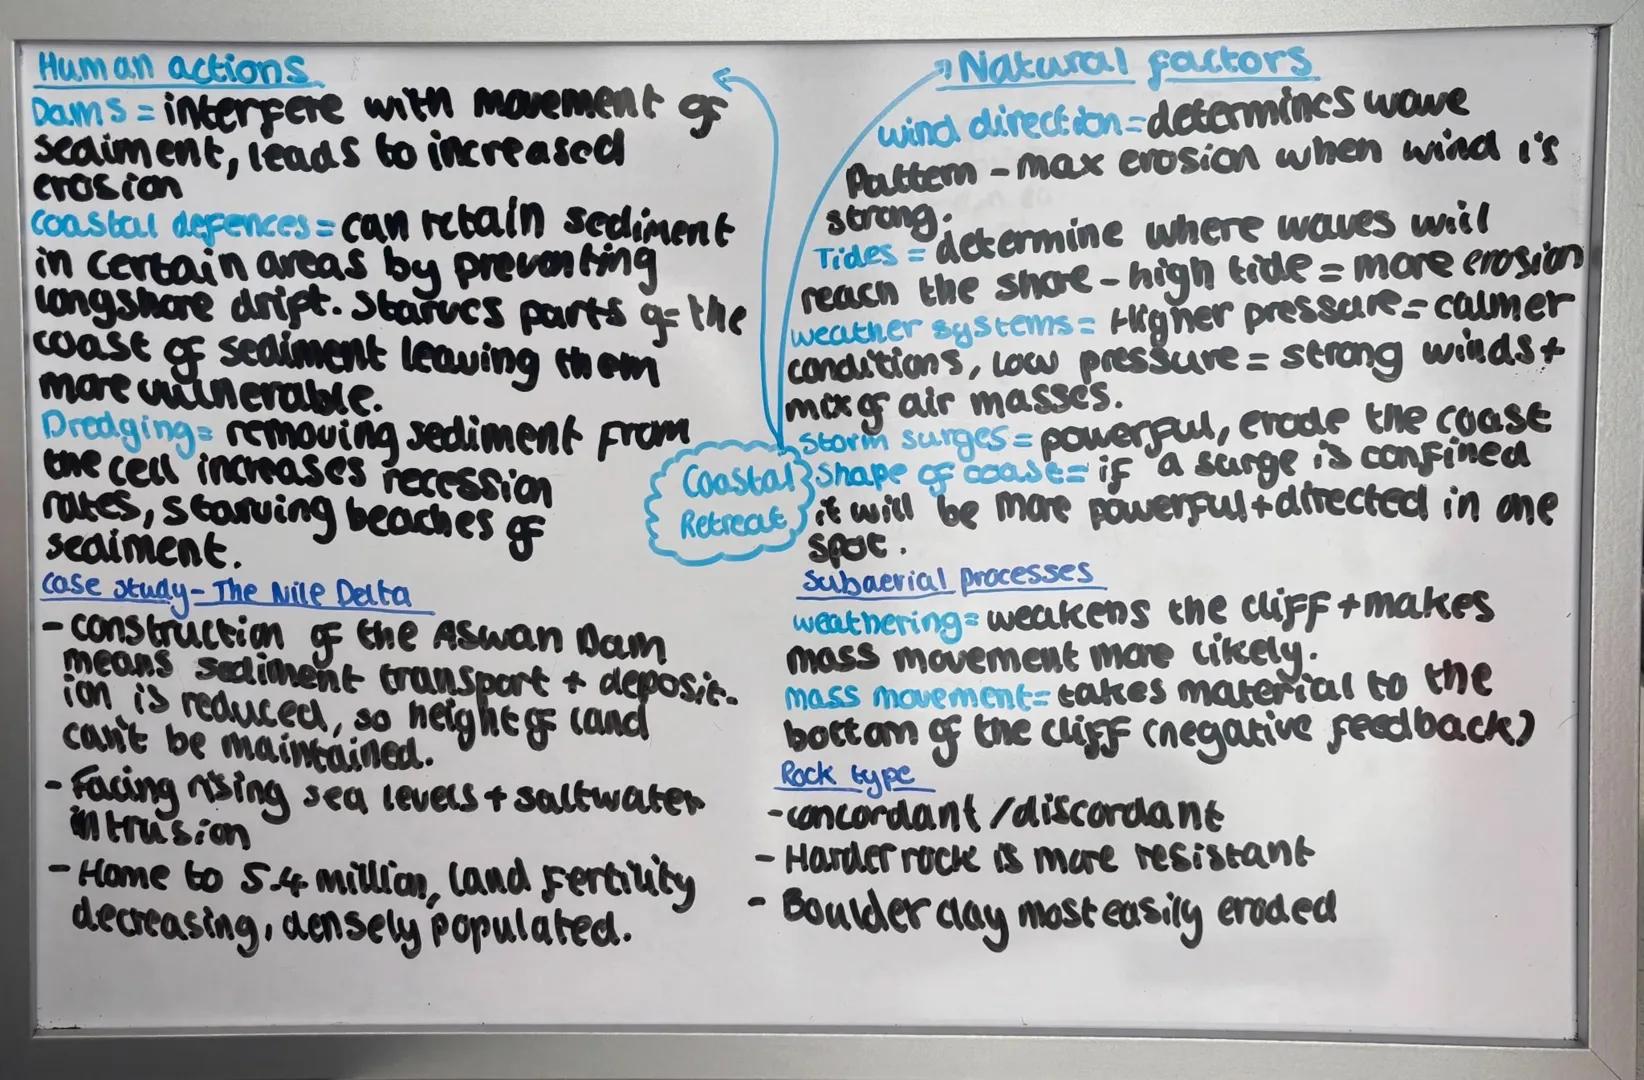 Human actions
Dams = interfere with movement of
sediment, leads to increased
erosion
Coastal defences = can retain sediment
in certain areas by preventing
longshore drift. Starves parts of the
coast of sediment leaving them
more vulnerable.
Dredging = removing sediment from
the cell increases recession
rates, starving beaches of
sediment.
Case study - The Nile Delta
- construction of the Aswan Dam
means sediment transport + deposit-
ion is reduced, so height of land
can't be maintained.
- Facing rising sea levels + saltwater
intrusion
- Home to 5.4 million, land fertility
decreasing, densely populated.
Coastal
Retreat
Natural factors
wind direction = determines wave
Pattern - max erosion when wind is
strong.
Tides = determine where waves will
reach the shore - high tide = more erosion
weather systems = Higher pressure = calmer
conditions, low pressure = strong winds +
mix of air masses.
Storm surges = powerful, erode the coast
Shape of coast = if a surge is confined
it will be more powerful + directed in one
spot.
Subaerial processes
weathering = weakens the cliff + makes
mass movement more likely.
mass movement = takes material to the
bottom of the cliff (negative feedback)
Rock type
- concordant / discordant
- Harder rock is more resistant
- Boulder clay most easily eroded